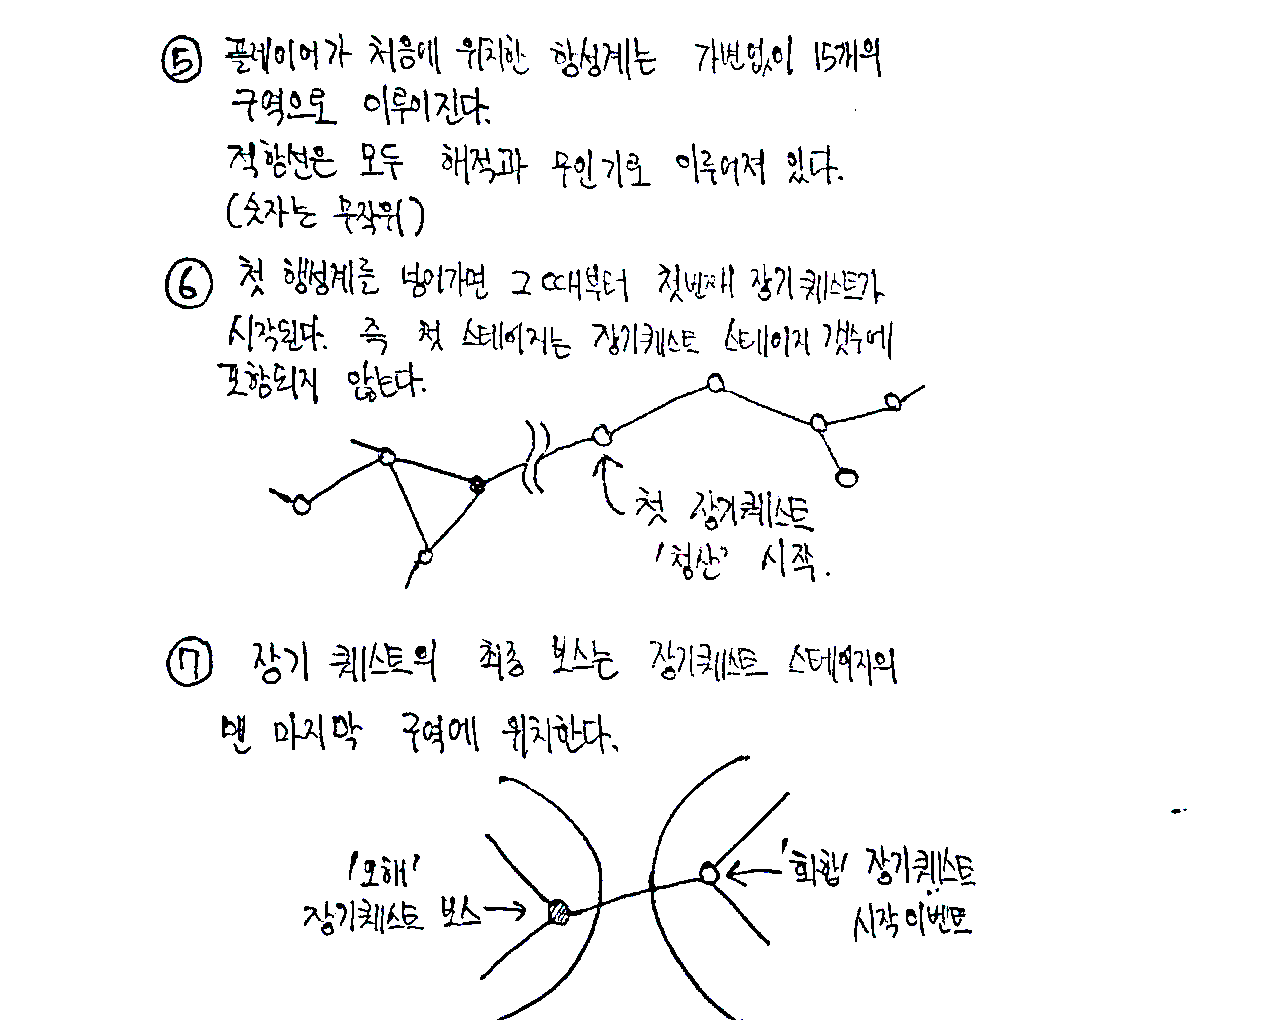 ⑤ 플레이어가 처음에 위치한 항성계는 가변없이 15개의
구역으로 이루어진다.
적함선은 모두 해적과 무인기로 이루어져 있다.
(숫자는 무작위)
⑥ 첫 행성계를 넘어가면 그 때부터 첫번째 장기퀘스트가
시작된다. 즉 첫 스테이지는 장기퀘스트 스테이지 갯수에
포함되지 않는다.
첫 장기퀘스트
'청산' 시작.
⑦ 장기 퀘스트의 최종 보스는 장기퀘스트 스테이지의
맨 마지막 구역에 위치한다.
'오해'
장기퀘스트 보스
'화합' 장기퀘스트
시작이벤트